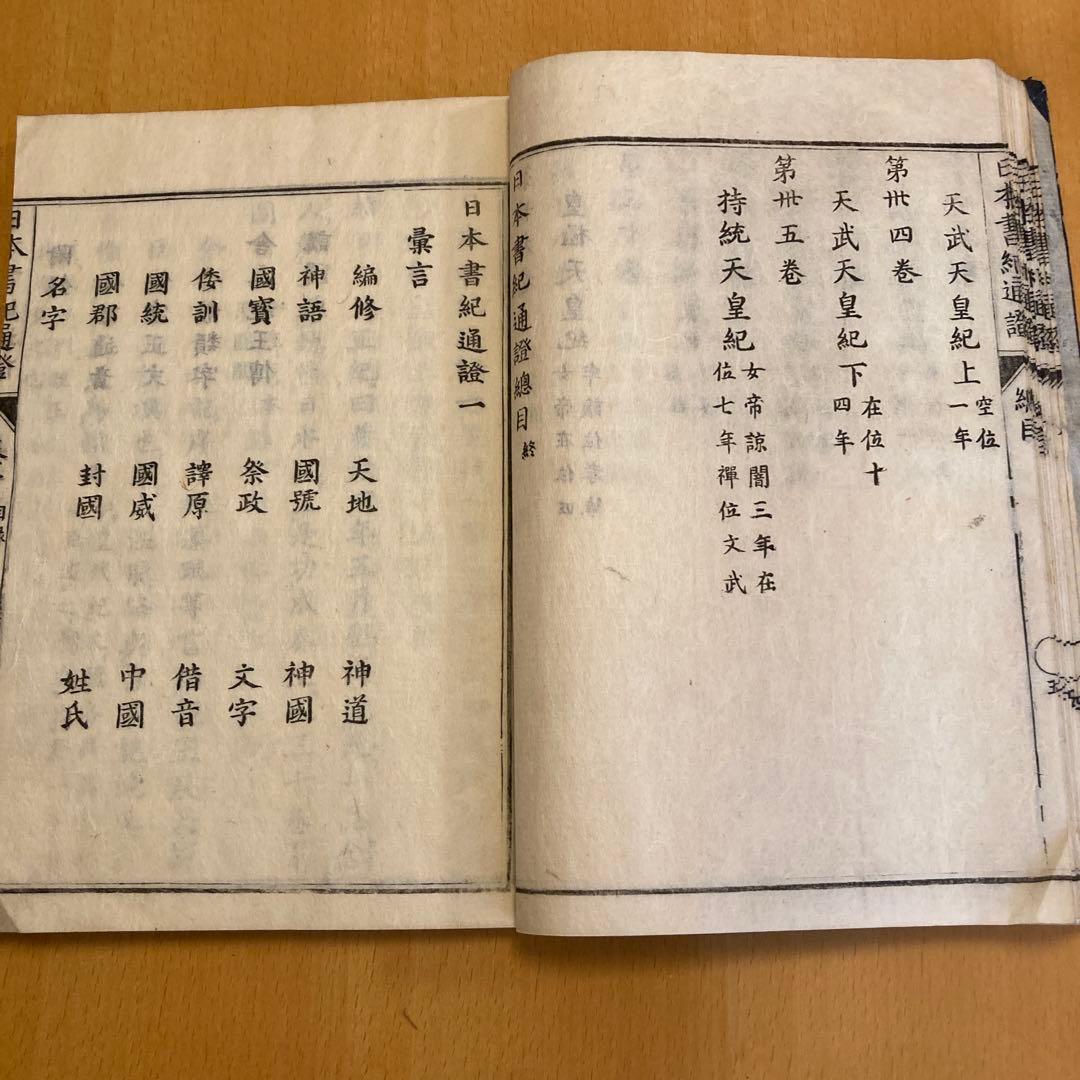 天武天皇紀上空位一年
第卅四卷
天武天皇紀下在位十四年
第卅五卷
持統天皇紀女帝諒闇三年在位七年禪位文武
日本書紀通證總目終
日本書紀通證一
彙言
編修 天地 神道
神語 國號 神國
國寶王傳 祭政 文字
倭訓 譯原 借音
國統 國威 中國
國郡 封國 姓氏
名字
日本書紀通證
日本書紀通證 總目